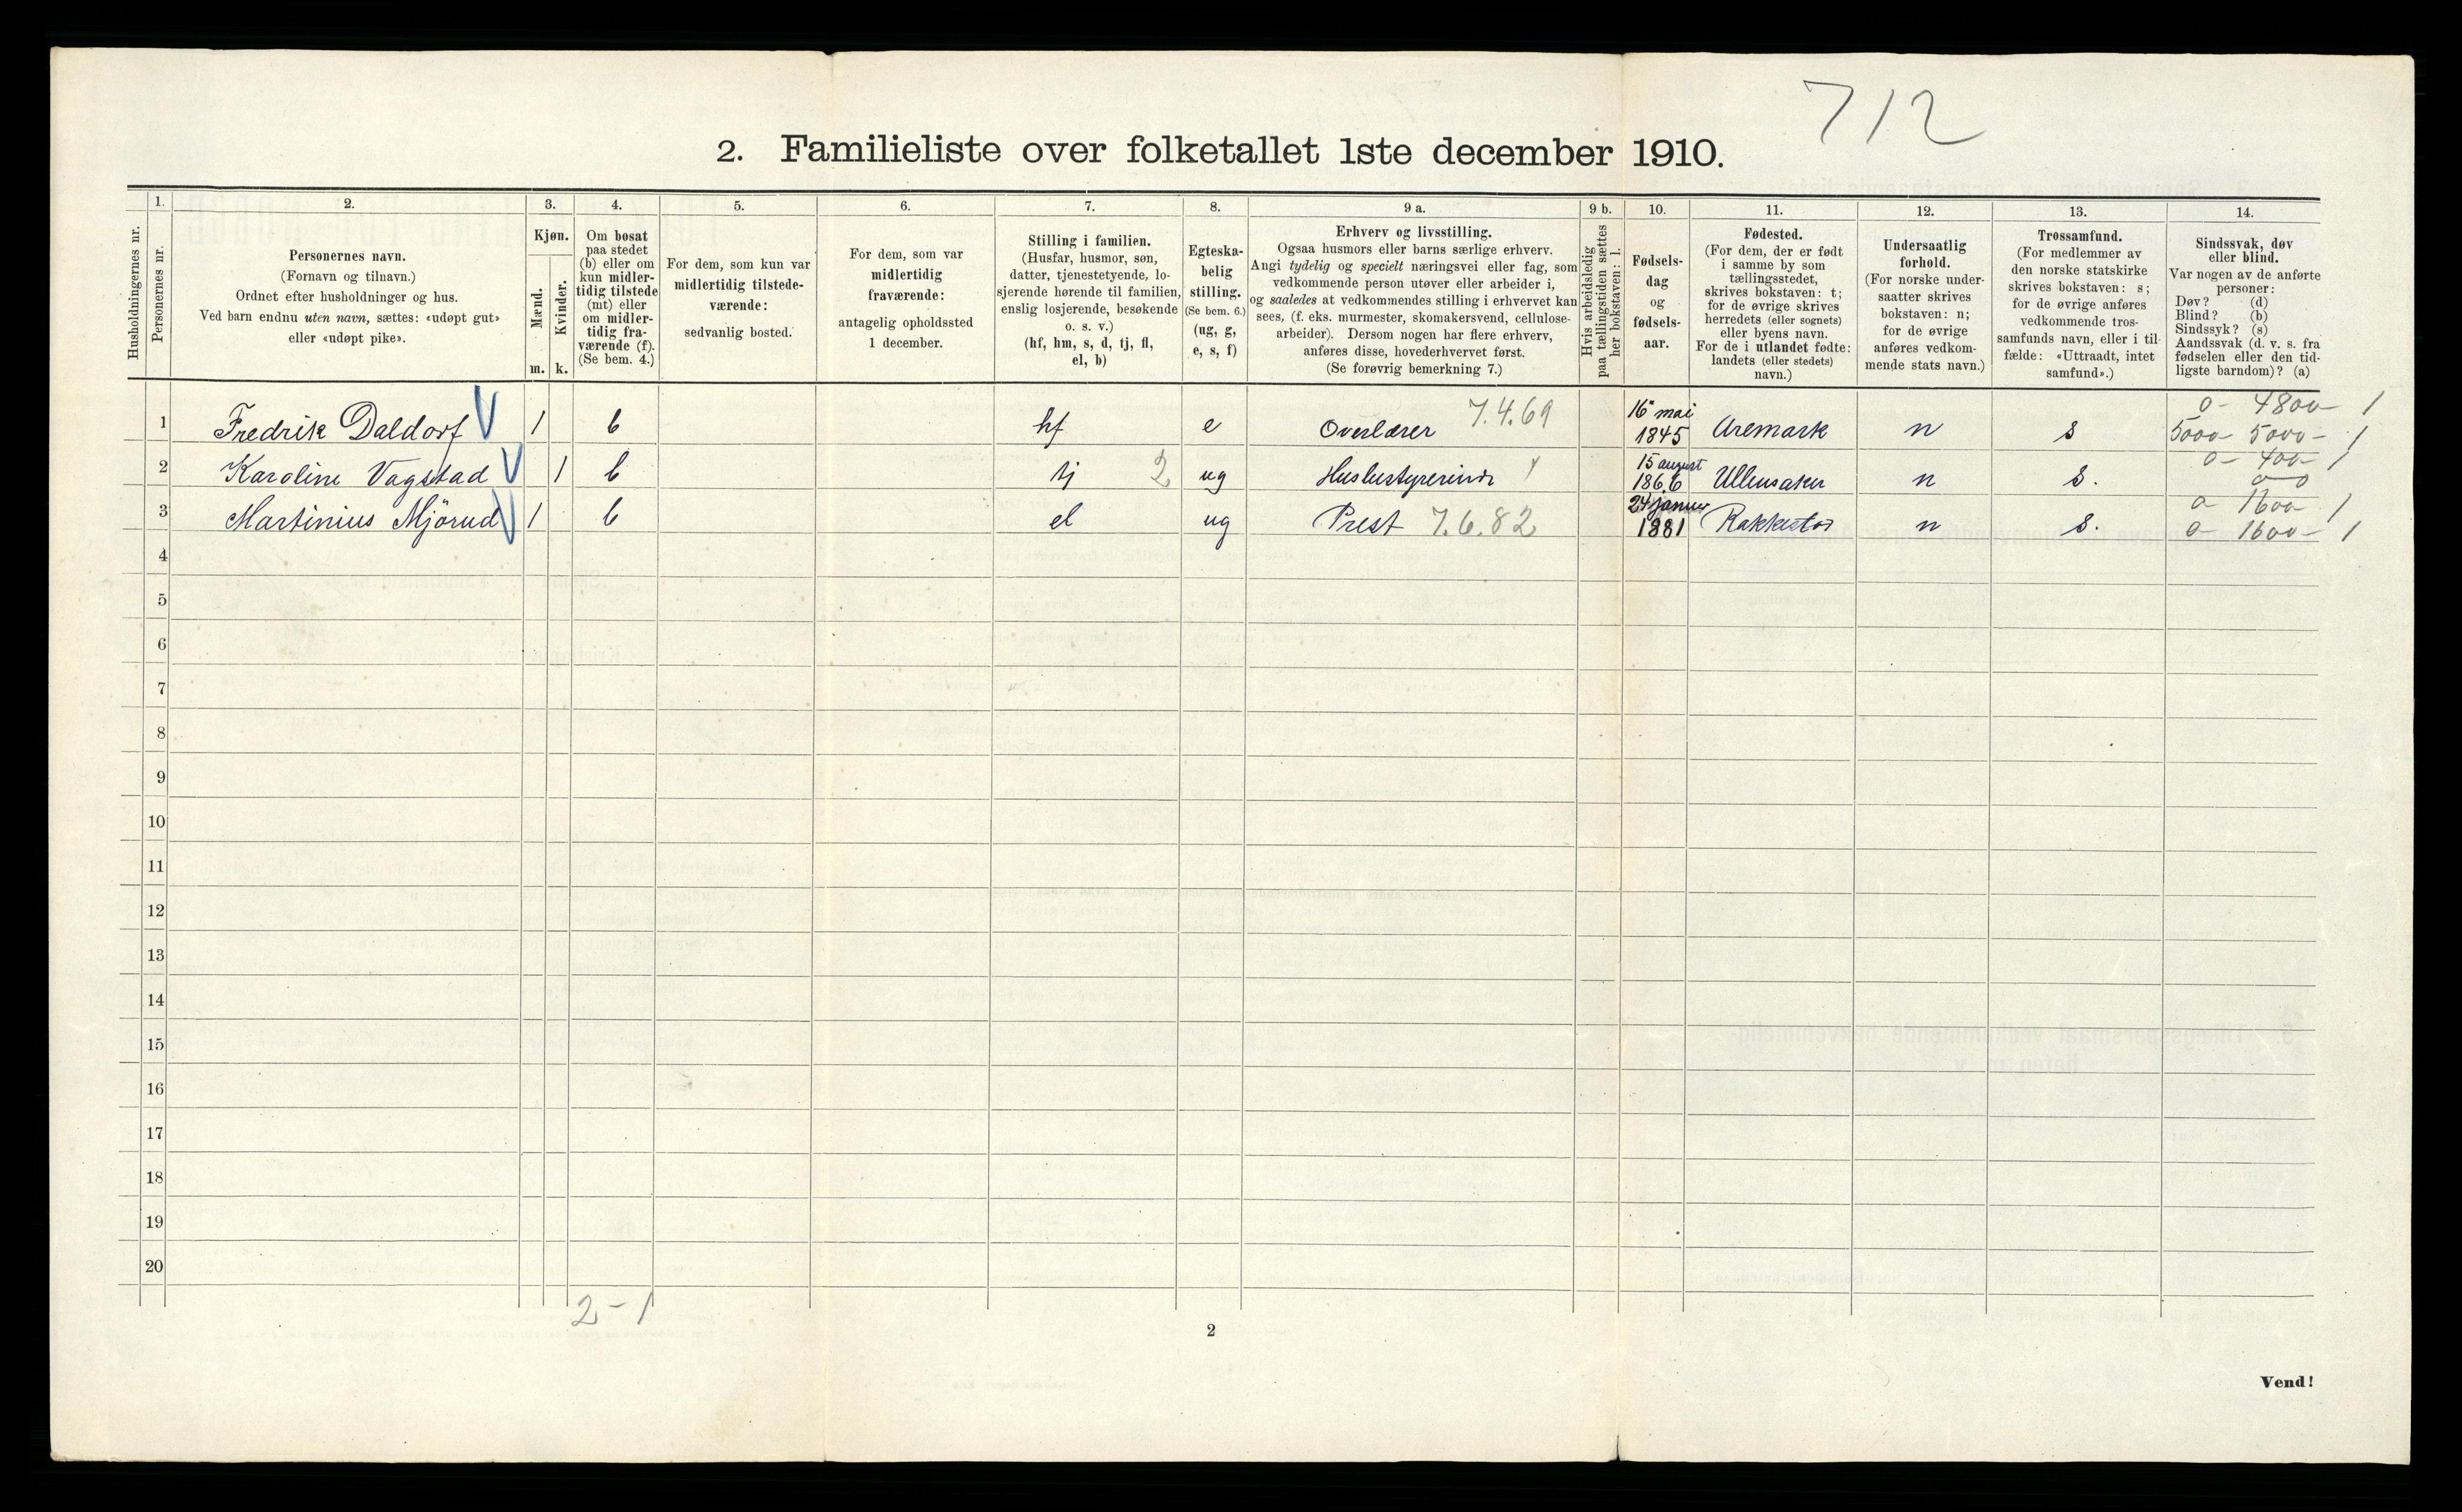 712
2. Familieliste over folketallet 1ste december 1910.
Husholdningernes nr.
1.
Personernes nr.
2.
Personernes navn.
(Fornavn og tilnavn.)
Ordnet efter husholdninger og hus.
Ved barn endnu uten navn, sættes: «udøpt gut»
eller «udøpt pike».
3.
Kjøn.
Mænd.
Kvinder.
m. k.
4.
Om bosat
paa stedet
(b) eller om
kun midler-
tidig tilstede
(mt) eller
om midler-
tidig fra-
værende (f).
(Se bem. 4.)
5.
For dem, som kun var
midlertidig tilstede-
værende:
sedvanlig bosted.
6.
For dem, som var
midlertidig
fraværende:
antagelig opholdssted
1 december.
7.
Stilling i familien.
(Husfar, husmor, søn,
datter, tjenestetyende, lo-
sjerende hørende til familien,
enslig losjerende, besøkende
o. s. v.)
(hf, hm, s, d, tj, fl,
el, b)
8.
Egteska-
belig
stilling.
(Se bem. 6.)
(ug, g,
e, s, f)
9 a.
Erhverv og livsstilling.
Ogsaa husmors eller barns særlige erhverv.
Angi tydelig og specielt næringsvei eller fag, som
vedkommende person utøver eller arbeider i,
og saaledes at vedkommendes stilling i erhvervet kan
sees, (f. eks. murmester, skomakersvend, cellulose-
arbeider). Dersom nogen har flere erhverv,
anføres disse, hovederhvervet først.
(Se forøvrig bemerkning 7.)
9 b.
Hvis arbeidsledig
paa tællingstiden sættes
her bokstaven: l.
10.
Fødsels-
dag
og
fødsels-
aar.
11.
Fødested.
(For dem, der er født
i samme by som
tællingsstedet,
skrives bokstaven: t;
for de øvrige skrives
herredets (eller sognets)
eller byens navn.
For de i utlandet fødte:
landets (eller stedets)
navn.)
12.
Undersaatlig
forhold.
(For norske under-
saatter skrives
bokstaven: n;
for de øvrige
anføres vedkom-
mende stats navn.)
13.
Trossamfund.
(For medlemmer av
den norske statskirke
skrives bokstaven: s;
for de øvrige anføres
vedkommende tros-
samfunds navn, eller i til-
fælde: «Uttraadt, intet
samfund».)
14.
Sindssvak, døv
eller blind.
Var nogen av de anførte
personer:
Døv? (d)
Blind? (b)
Sindssyk? (s)
Aandssvak (d. v. s. fra
fødselen eller den tid-
ligste barndom)? (a)
1 Fredrik Daldorf V 1 b hf e Overlærer 7.4.69 16 mai 1845 Aremark n s 0- 4800- 1
5000- 5000- 1
2 Karoline Vagstad V 1 b tj 2 ug Husbestyrerinde 15 august 1866 Ullensaker n s. 0- 400- 1
0 0
3 Martinius Mjörud V 1 b el ug Prest 7.6.82 24 januar 1881 Rakkestad n s. 0 1600 1
0- 1600- 1
4
5
6
7
8
9
10
11
12
13
14
15
16
17
18
19
20
2-1
2
Vend!